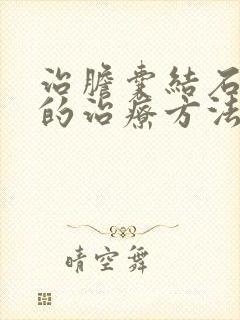 治膽囊結石
的治療方法
晴空舞